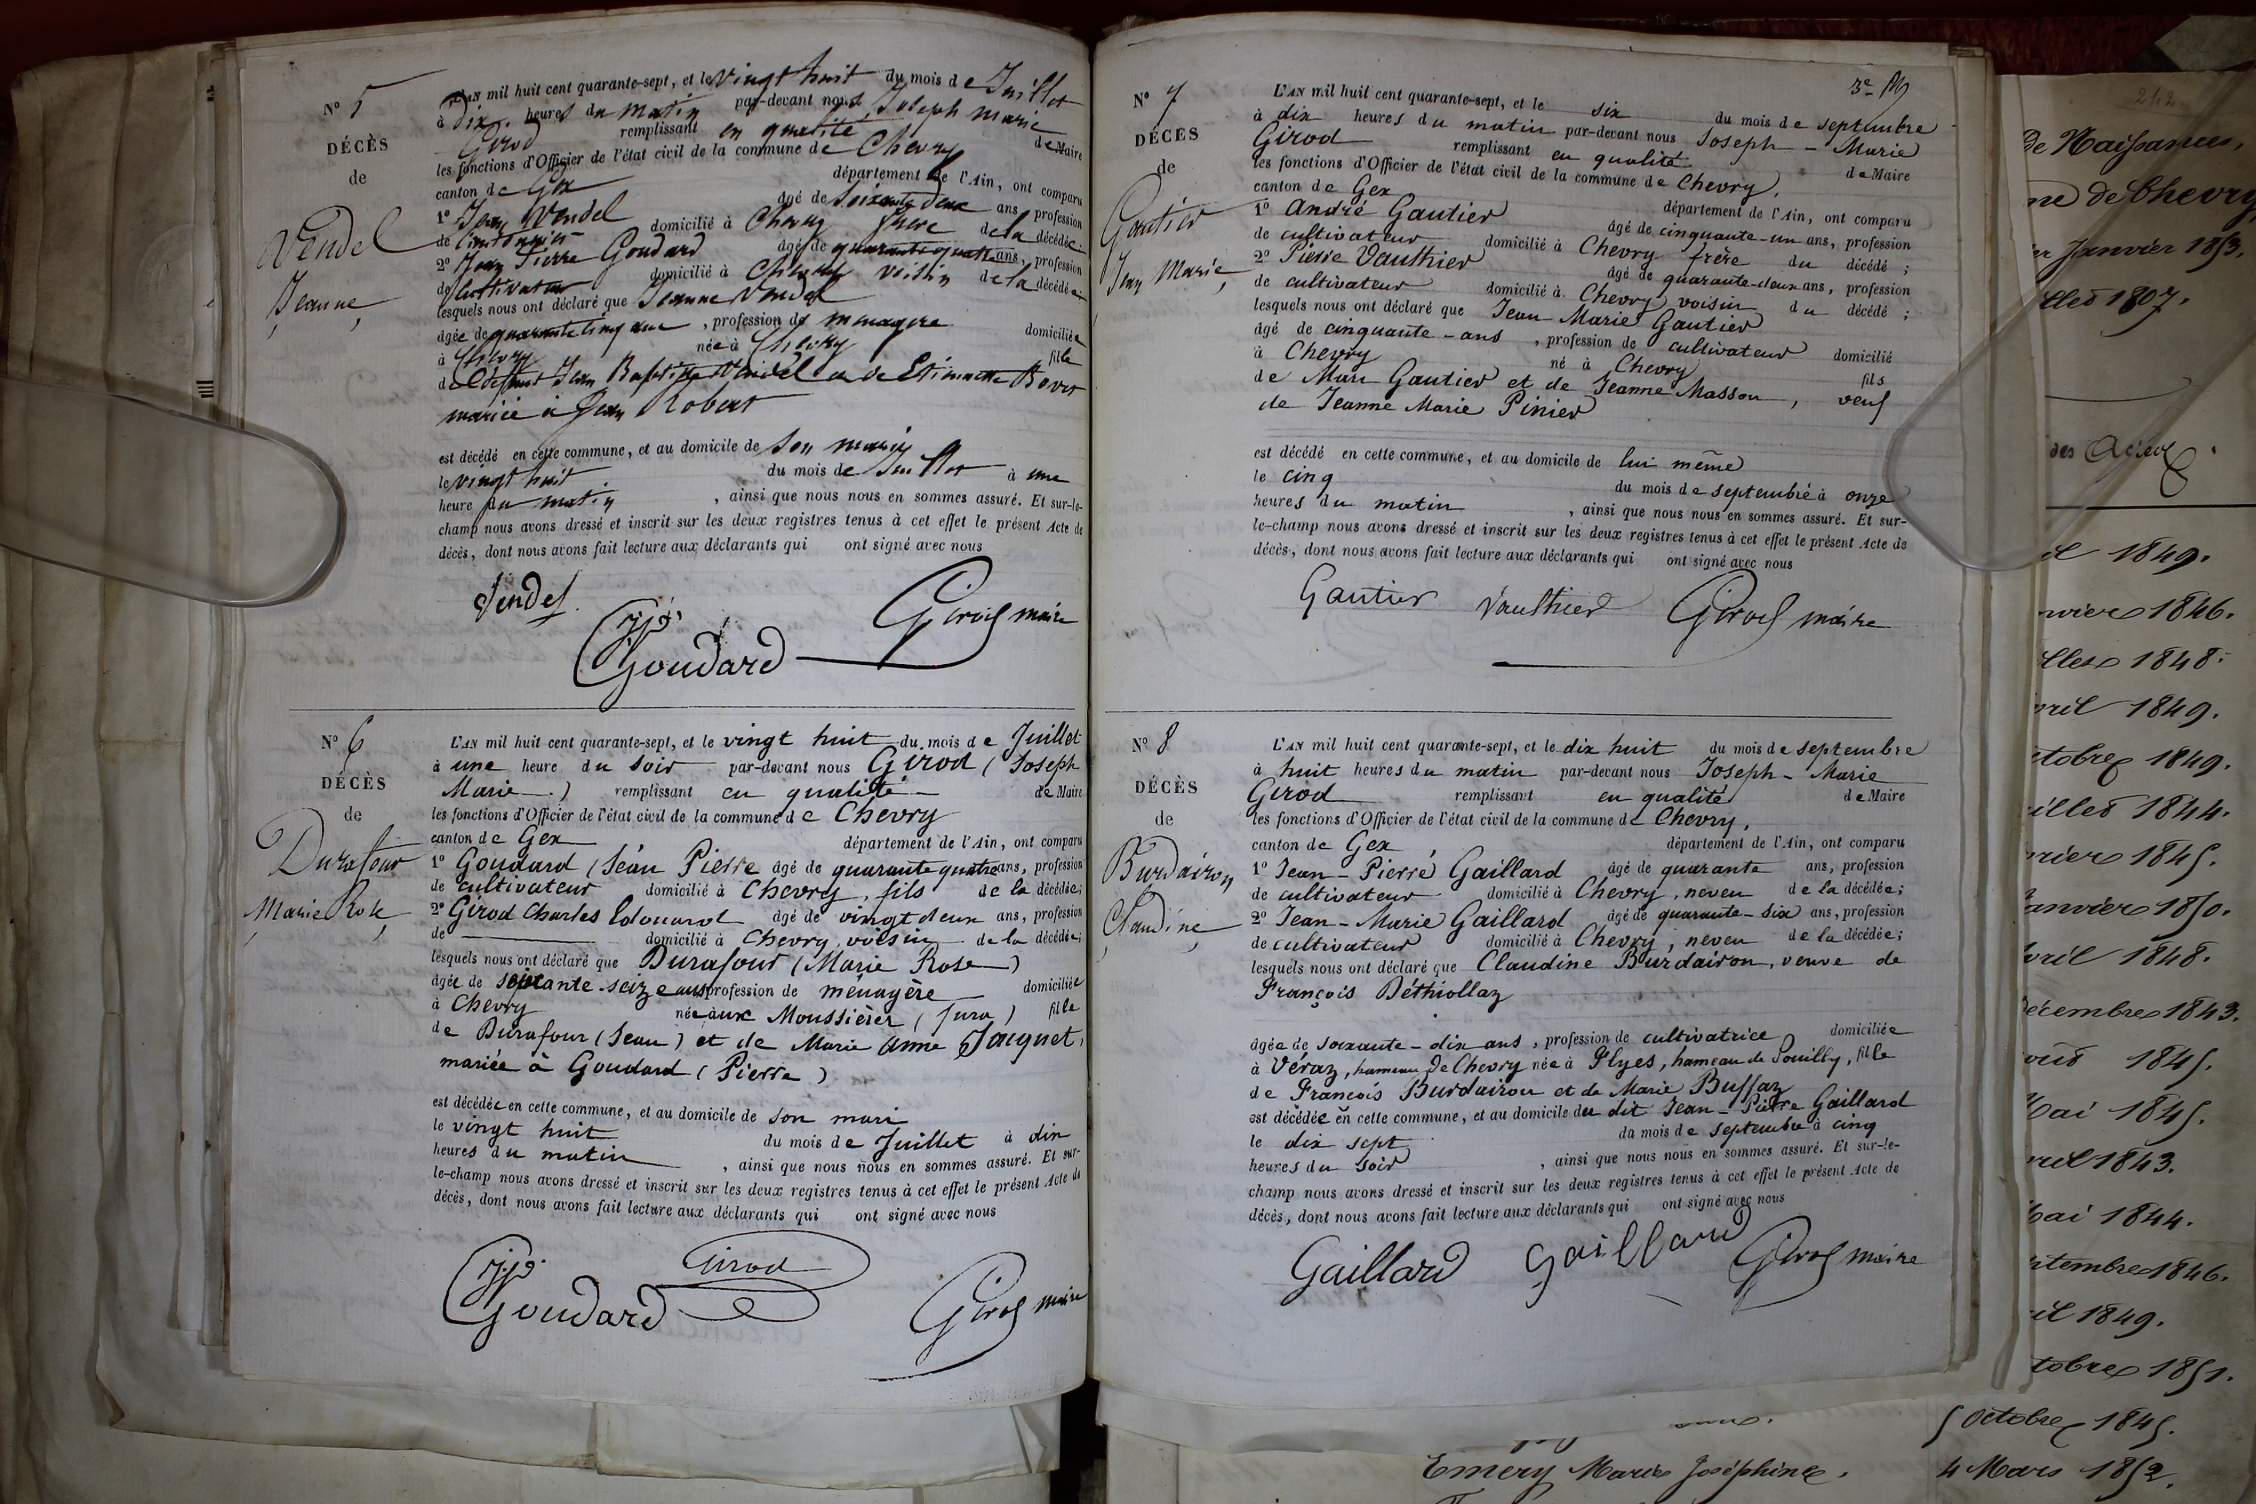 N° 5
DÉCÈS
de
Vendel
Jeanne
L'AN mil huit cent quarante-sept, et le vingt huit du mois de Juillet
à Dix heures du matin par-devant nous Joseph marie
Girod remplissant en qualité de Maire
les fonctions d'Officier de l'état civil de la commune de Chevry
canton de Gex département de l'Ain, ont comparu
1° Jean Vendel âgé de Soixante deux ans, profession
de domicilié à Chevry frere de la décédée;
2° Jean Pierre Goudard âgé de quarante quatre ans, profession
de Cultivateur domicilié à Chevry voisin de la décédée;
lesquels nous ont déclaré que Jeanne Vendel
âgée de quarante cinq ans, profession de menagere domiciliée
à Chevry née à Chevry fille
de deffunt Jean Baptiste Vendel et de Etiennette
mariée à Jean Robert
est décédé en cette commune, et au domicile de son mari
le vingt huit du mois de Juillet à une
heure du matin, ainsi que nous nous en sommes assuré. Et sur-le-
champ nous avons dressé et inscrit sur les deux registres tenus à cet effet le présent Acte de
décès, dont nous avons fait lecture aux déclarants qui ont signé avec nous
Vendel
JP Goudard Girod maire
N° 6
DÉCÈS
de
Durafour
Marie Rose
L'AN mil huit cent quarante-sept, et le vingt huit du mois de Juillet
à une heure du soir par-devant nous Girod (Joseph
Marie.) remplissant en qualité de Maire
les fonctions d'Officier de l'état civil de la commune de Chevry
canton de Gex département de l'Ain, ont comparu
1° Goudard (Jean Pierre âgé de quarante quatre ans, profession
de cultivateur domicilié à Chevry, fils de la décédée;
2° Girod Charles Edouard âgé de vingt deux ans, profession
de domicilié à Chevry voisin de la décédée;
lesquels nous ont déclaré que Durafour (Marie Rose)
âgée de soixante-seize ans profession de ménagère domiciliée
à Chevry née aux Moussières (Jura) fille
de Durafour (Jean) et de Marie Anne Jaquet,
mariée à Goudard (Pierre)
est décédée en cette commune, et au domicile de son mari
le vingt huit du mois de Juillet à dix
heures du matin, ainsi que nous nous en sommes assuré. Et sur-
le-champ nous avons dressé et inscrit sur les deux registres tenus à cet effet le présent Acte de
décès, dont nous avons fait lecture aux déclarants qui ont signé avec nous
JP Goudard Girod Girod maire
3e
N° 7
DÉCÈS
de
Gautier
Jean Marie
L'AN mil huit cent quarante-sept, et le six du mois de septembre
à dix heures du matin par-devant nous Joseph-Marie
Girod remplissant en qualité de Maire
les fonctions d'Officier de l'état civil de la commune de Chevry,
canton de Gex département de l'Ain, ont comparu
1° André Gautier âgé de cinquante-un ans, profession
de cultivateur domicilié à Chevry frère du décédé;
2° Pierre Vauthier âgé de quarante-deux ans, profession
de cultivateur domicilié à Chevry voisin du décédé;
lesquels nous ont déclaré que Jean-Marie Gautier
âgé de cinquante-ans, profession de cultivateur domicilié
à Chevry né à Chevry fils
de Marc Gautier et de Jeanne Masson, veuf
de Jeanne Marie Pinier
est décédé en cette commune, et au domicile de lui même
le cinq du mois de septembre à onze
heures du matin, ainsi que nous nous en sommes assuré. Et sur-
le-champ nous avons dressé et inscrit sur les deux registres tenus à cet effet le présent Acte de
décès, dont nous avons fait lecture aux déclarants qui ont signé avec nous
Gautier Vauthier Girod maire
N° 8
DÉCÈS
de
Burdairon
Claudine
L'AN mil huit cent quarante-sept, et le dix huit du mois de septembre
à huit heures du matin par-devant nous Joseph-Marie
Girod remplissant en qualité de Maire
les fonctions d'Officier de l'état civil de la commune de Chevry,
canton de Gex département de l'Ain, ont comparu
1° Jean-Pierre Gaillard âgé de quarante ans, profession
de cultivateur domicilié à Chevry, neveu de la décédée;
2° Jean-Marie Gaillard âgé de quarante-six ans, profession
de cultivateur domicilié à Chevry, neveu de la décédée;
lesquels nous ont déclaré que Claudine Burdairon, veuve de
François Béthiollaz
âgée de soixante-dix ans, profession de cultivatrice domiciliée
à Véraz, hameau de Chevry née à Flyes, hameau de Pouilly, fille
de François Burdairon et de Marie Buffaz
est décédée en cette commune, et au domicile du dit Jean-Pierre Gaillard
le dix sept du mois de septembre à cinq
heures du soir, ainsi que nous nous en sommes assuré. Et sur-le-
champ nous avons dressé et inscrit sur les deux registres tenus à cet effet le présent Acte de
décès, dont nous avons fait lecture aux déclarants qui ont signé avec nous
Gaillard Gaillard Girod maire
242
de Naissances,
ne de Chevry
er Janvier 1853.
illet 1807.
des Actes
il 1849.
nvier 1846.
illet 1848.
vril 1849.
ctobre 1849.
uillet 1844.
vrier 1845.
Janvier 1850.
Avril 1848.
Décembre 1843.
oût 1845.
Mai 1845.
vril 1843.
Mai 1844.
ptembre 1846.
ril 1849.
ctobre 1851.
5 Octobre 1845.
Emery Marie Joséphine. 4 Mars 1852.